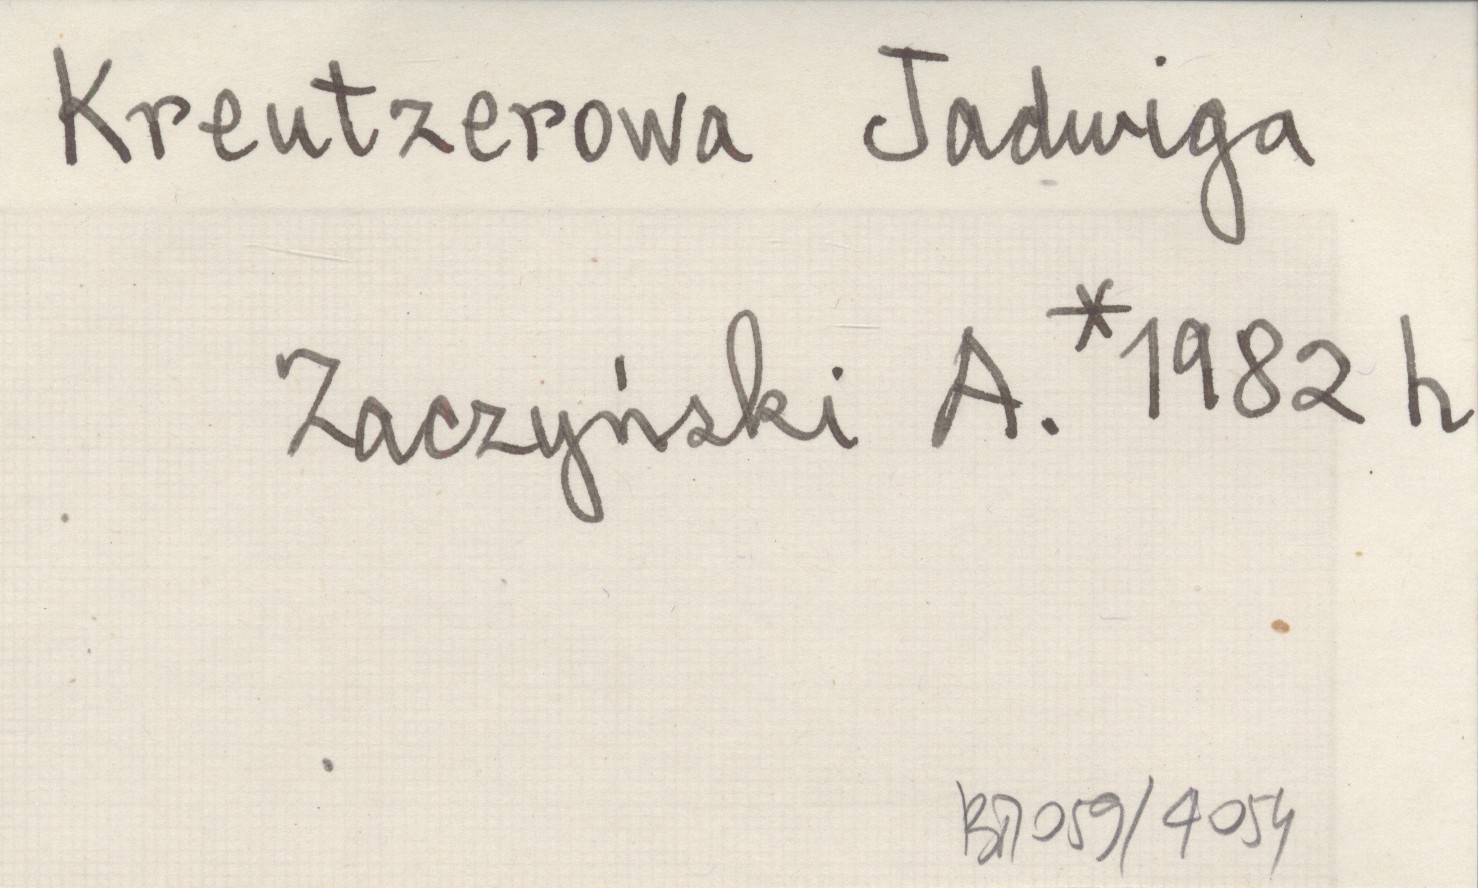 Kreutzerowa Jadwiga
Zaczyński A. *1982 h
059/4054